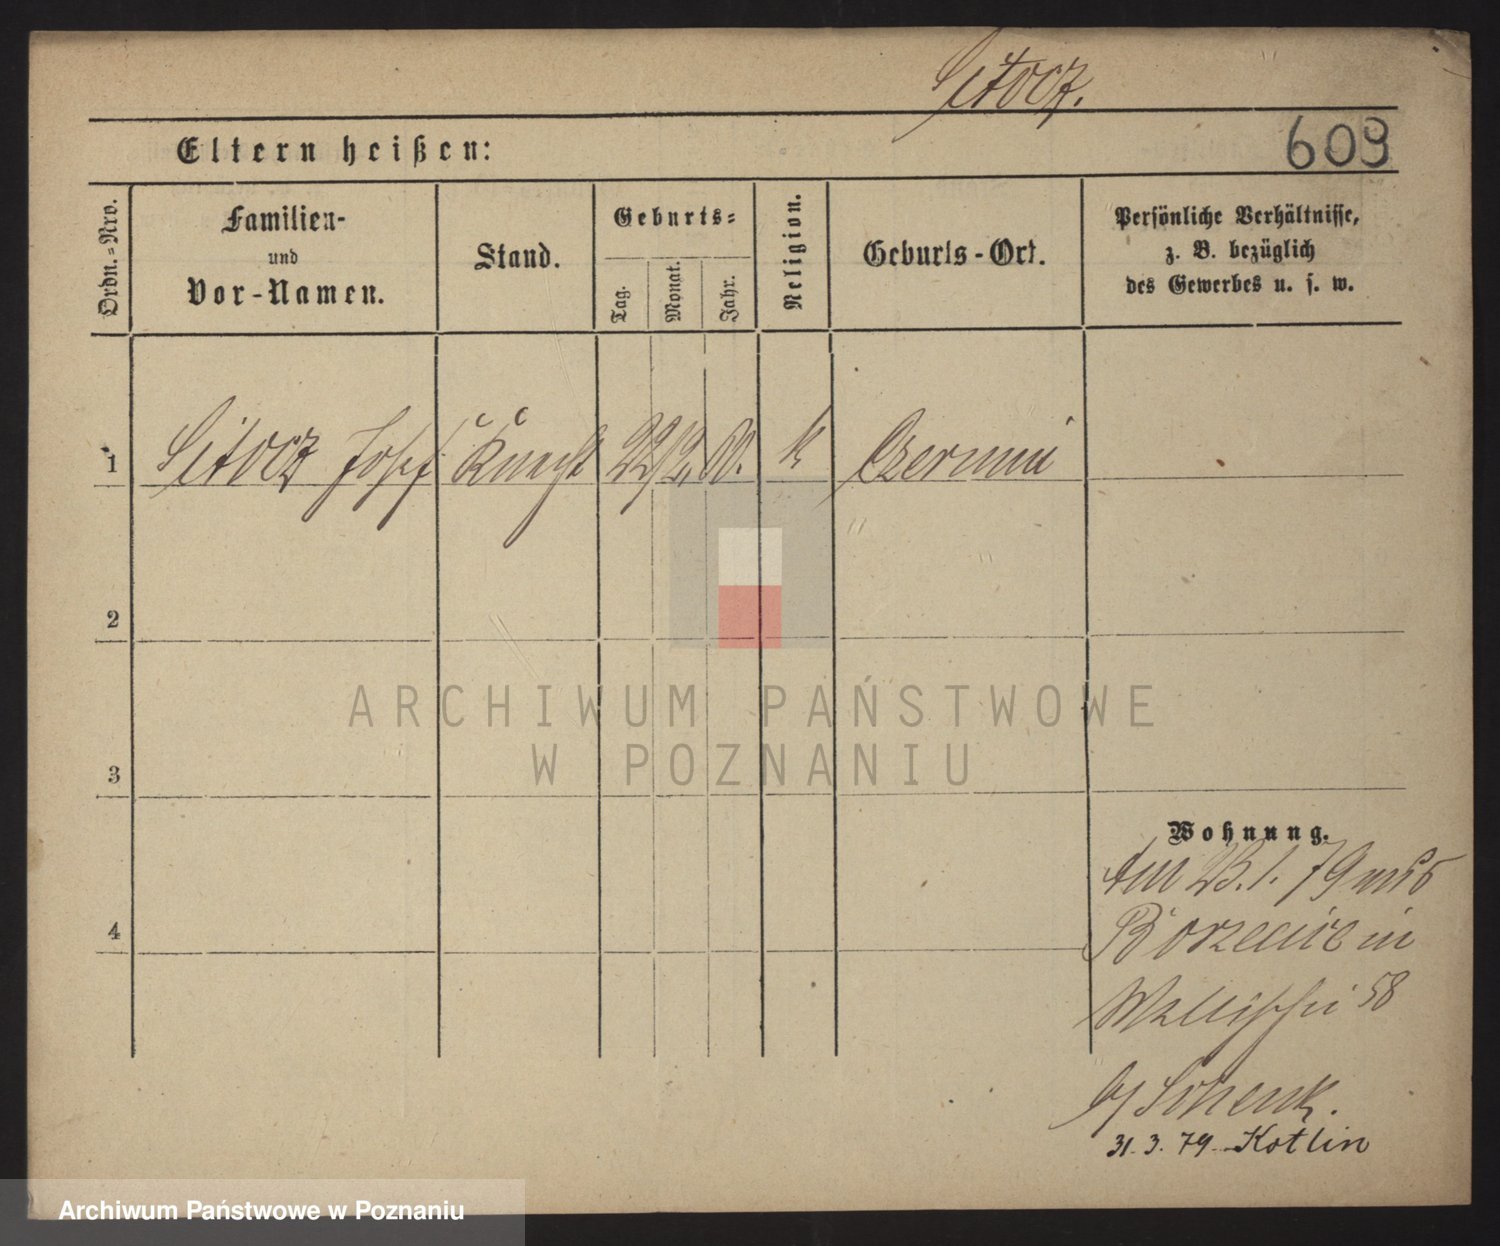 Sitocz.
609
Eltern heißen:
Ordn.-Nro.
Familien-
und
Vor-Namen.
Stand.
Geburts-
Tag.
Monat.
Jahr.
Religion.
Geburts-Ort.
Persönliche Verhältnisse,
z. B. bezüglich
des Gewerbes u. s. w.
1 Sitocz Josef Knecht 22/2. 60. k Czermin
2
3
4
Wohnung.
Am 23.1.79 aus
in
Wallischei 58
b/ Schenk.
31.3.79 Kotlin
ARCHIWUM PAŃSTWOWE
W POZNANIU
Archiwum Państwowe w Poznaniu